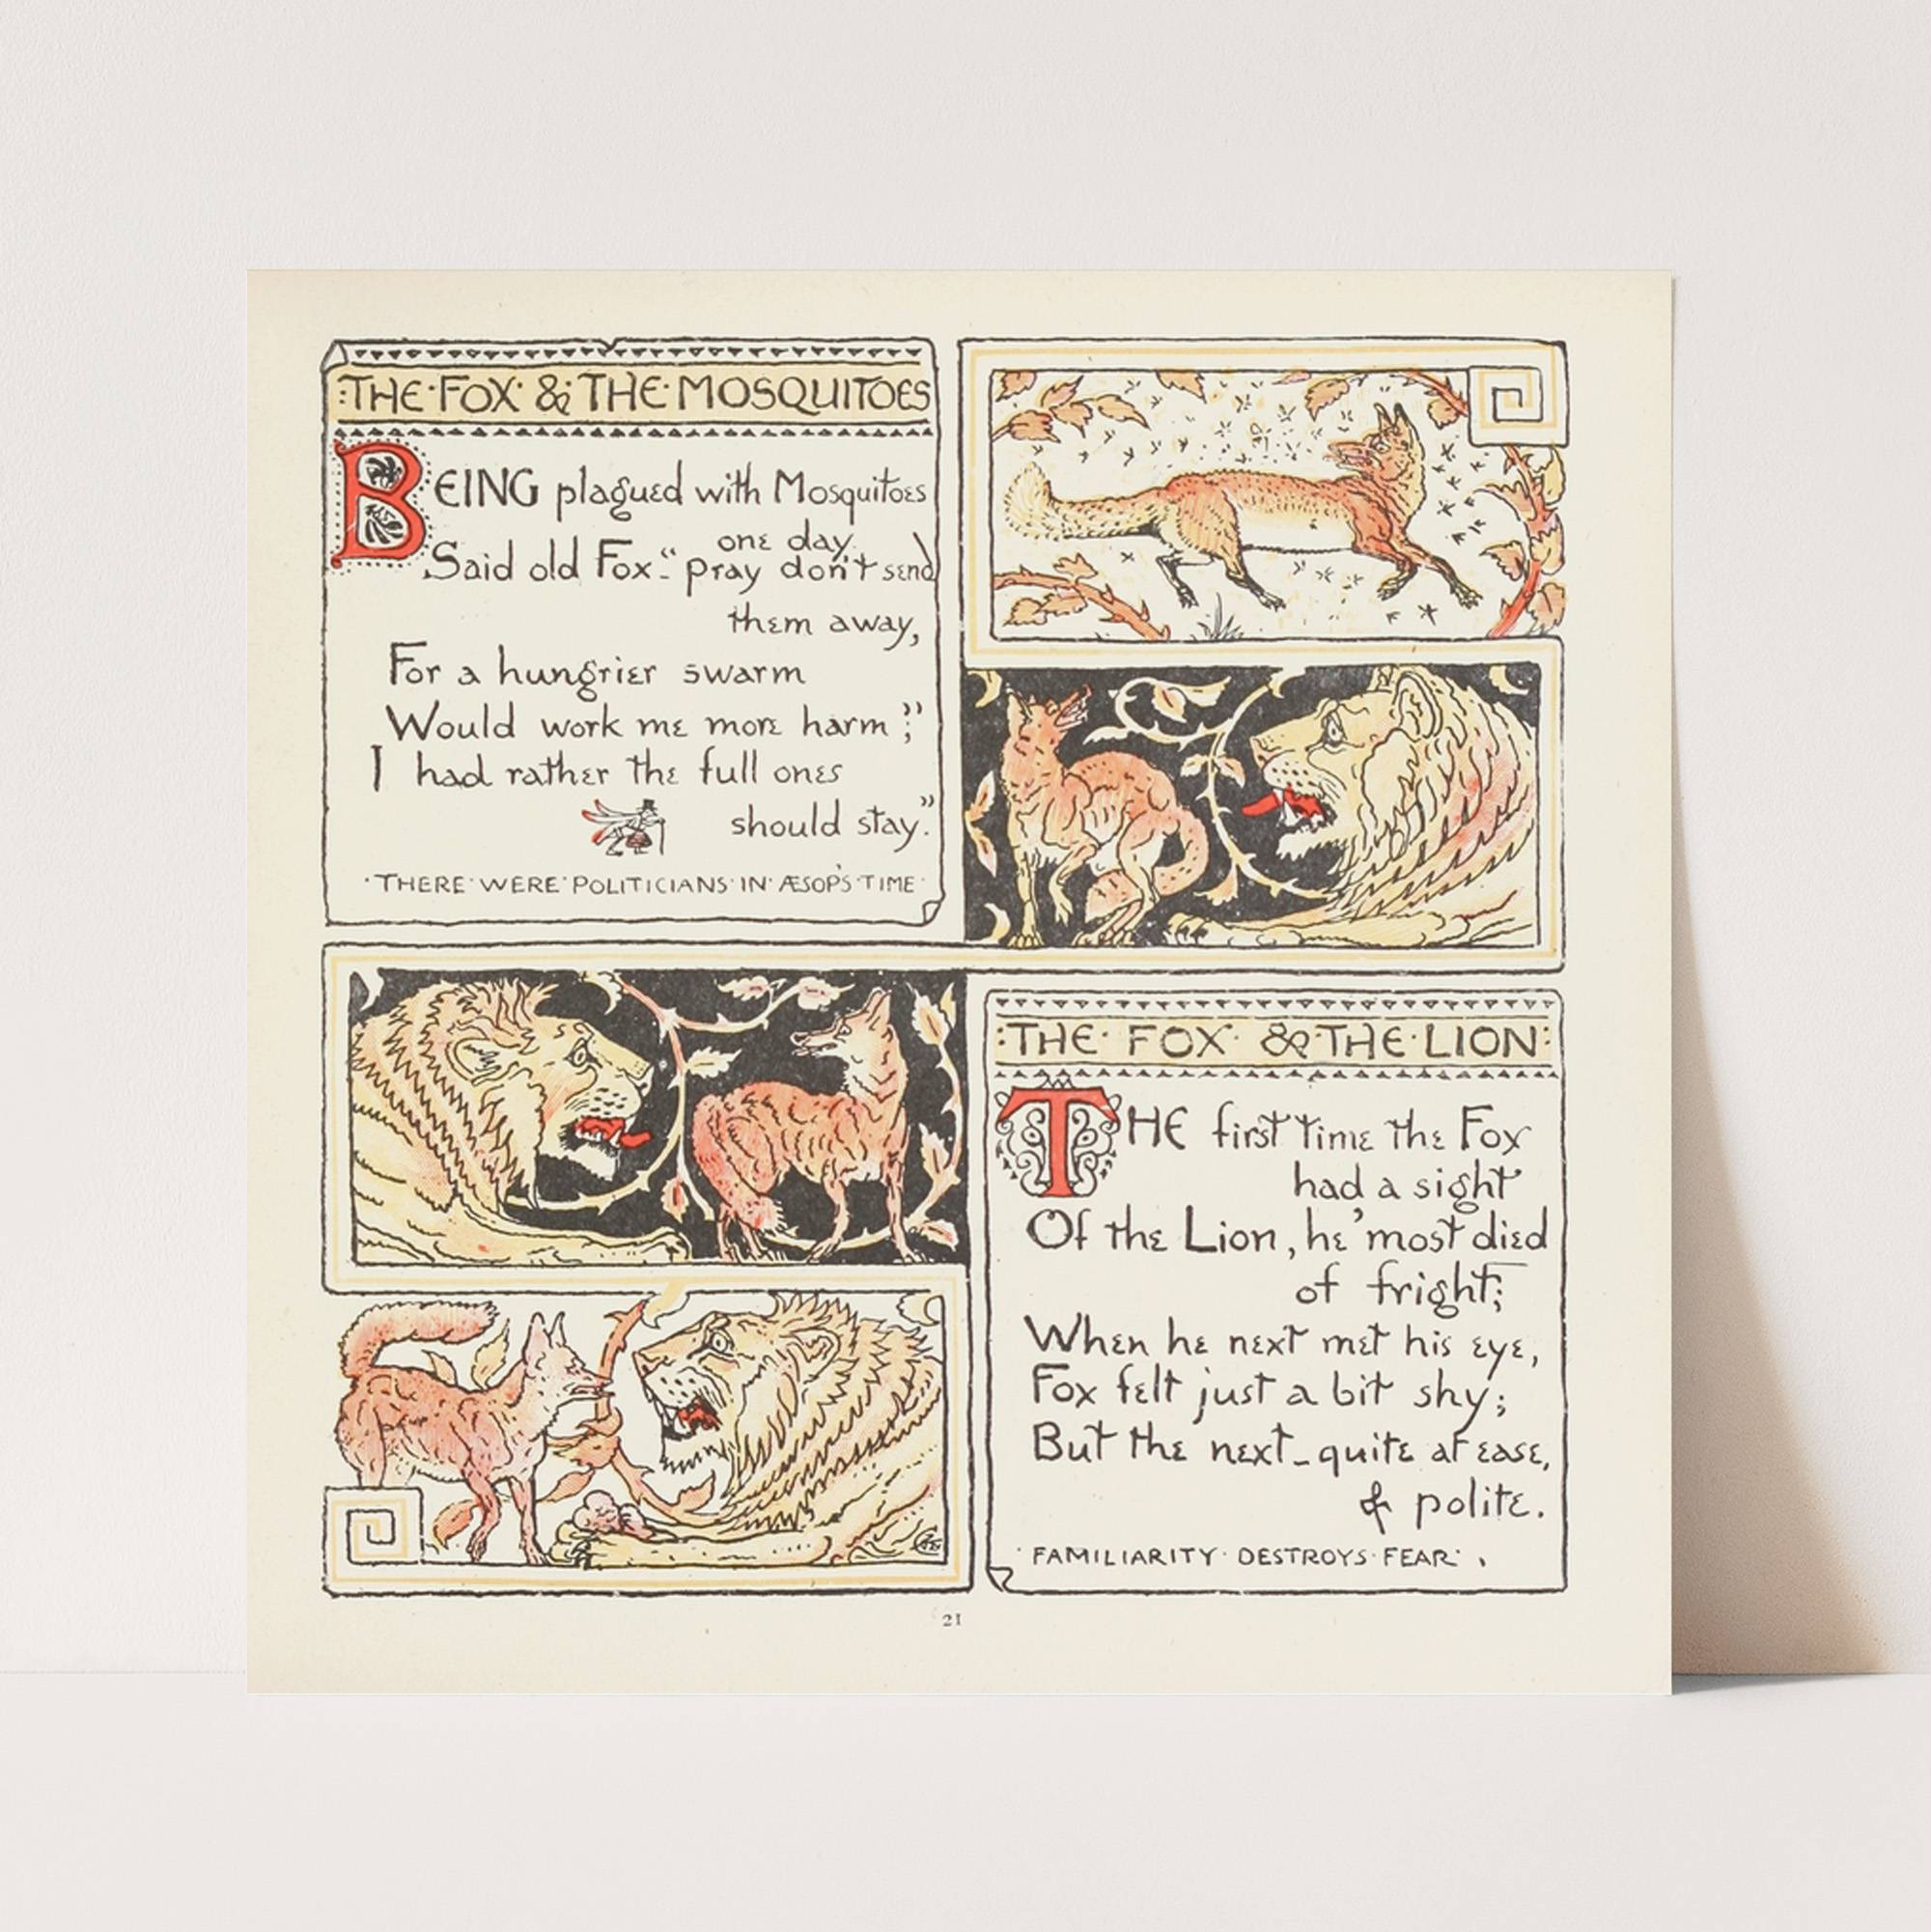 :THE·FOX·&·THE·MOSQUITOES
BEING plagued with Mosquitoes
one day.
Said old Fox:- "pray don't send
them away,
For a hungrier swarm
Would work me more harm;"
I had rather the full ones
should stay."
·THERE·WERE·POLITICIANS·IN·ÆSOP'S·TIME·
:THE·FOX·&·THE·LION:
THE first time the Fox
had a sight
Of the Lion, he 'most died
of fright;
When he next met his eye,
Fox felt just a bit shy;
But the next - quite at ease,
& polite.
·FAMILIARITY·DESTROYS·FEAR·
21